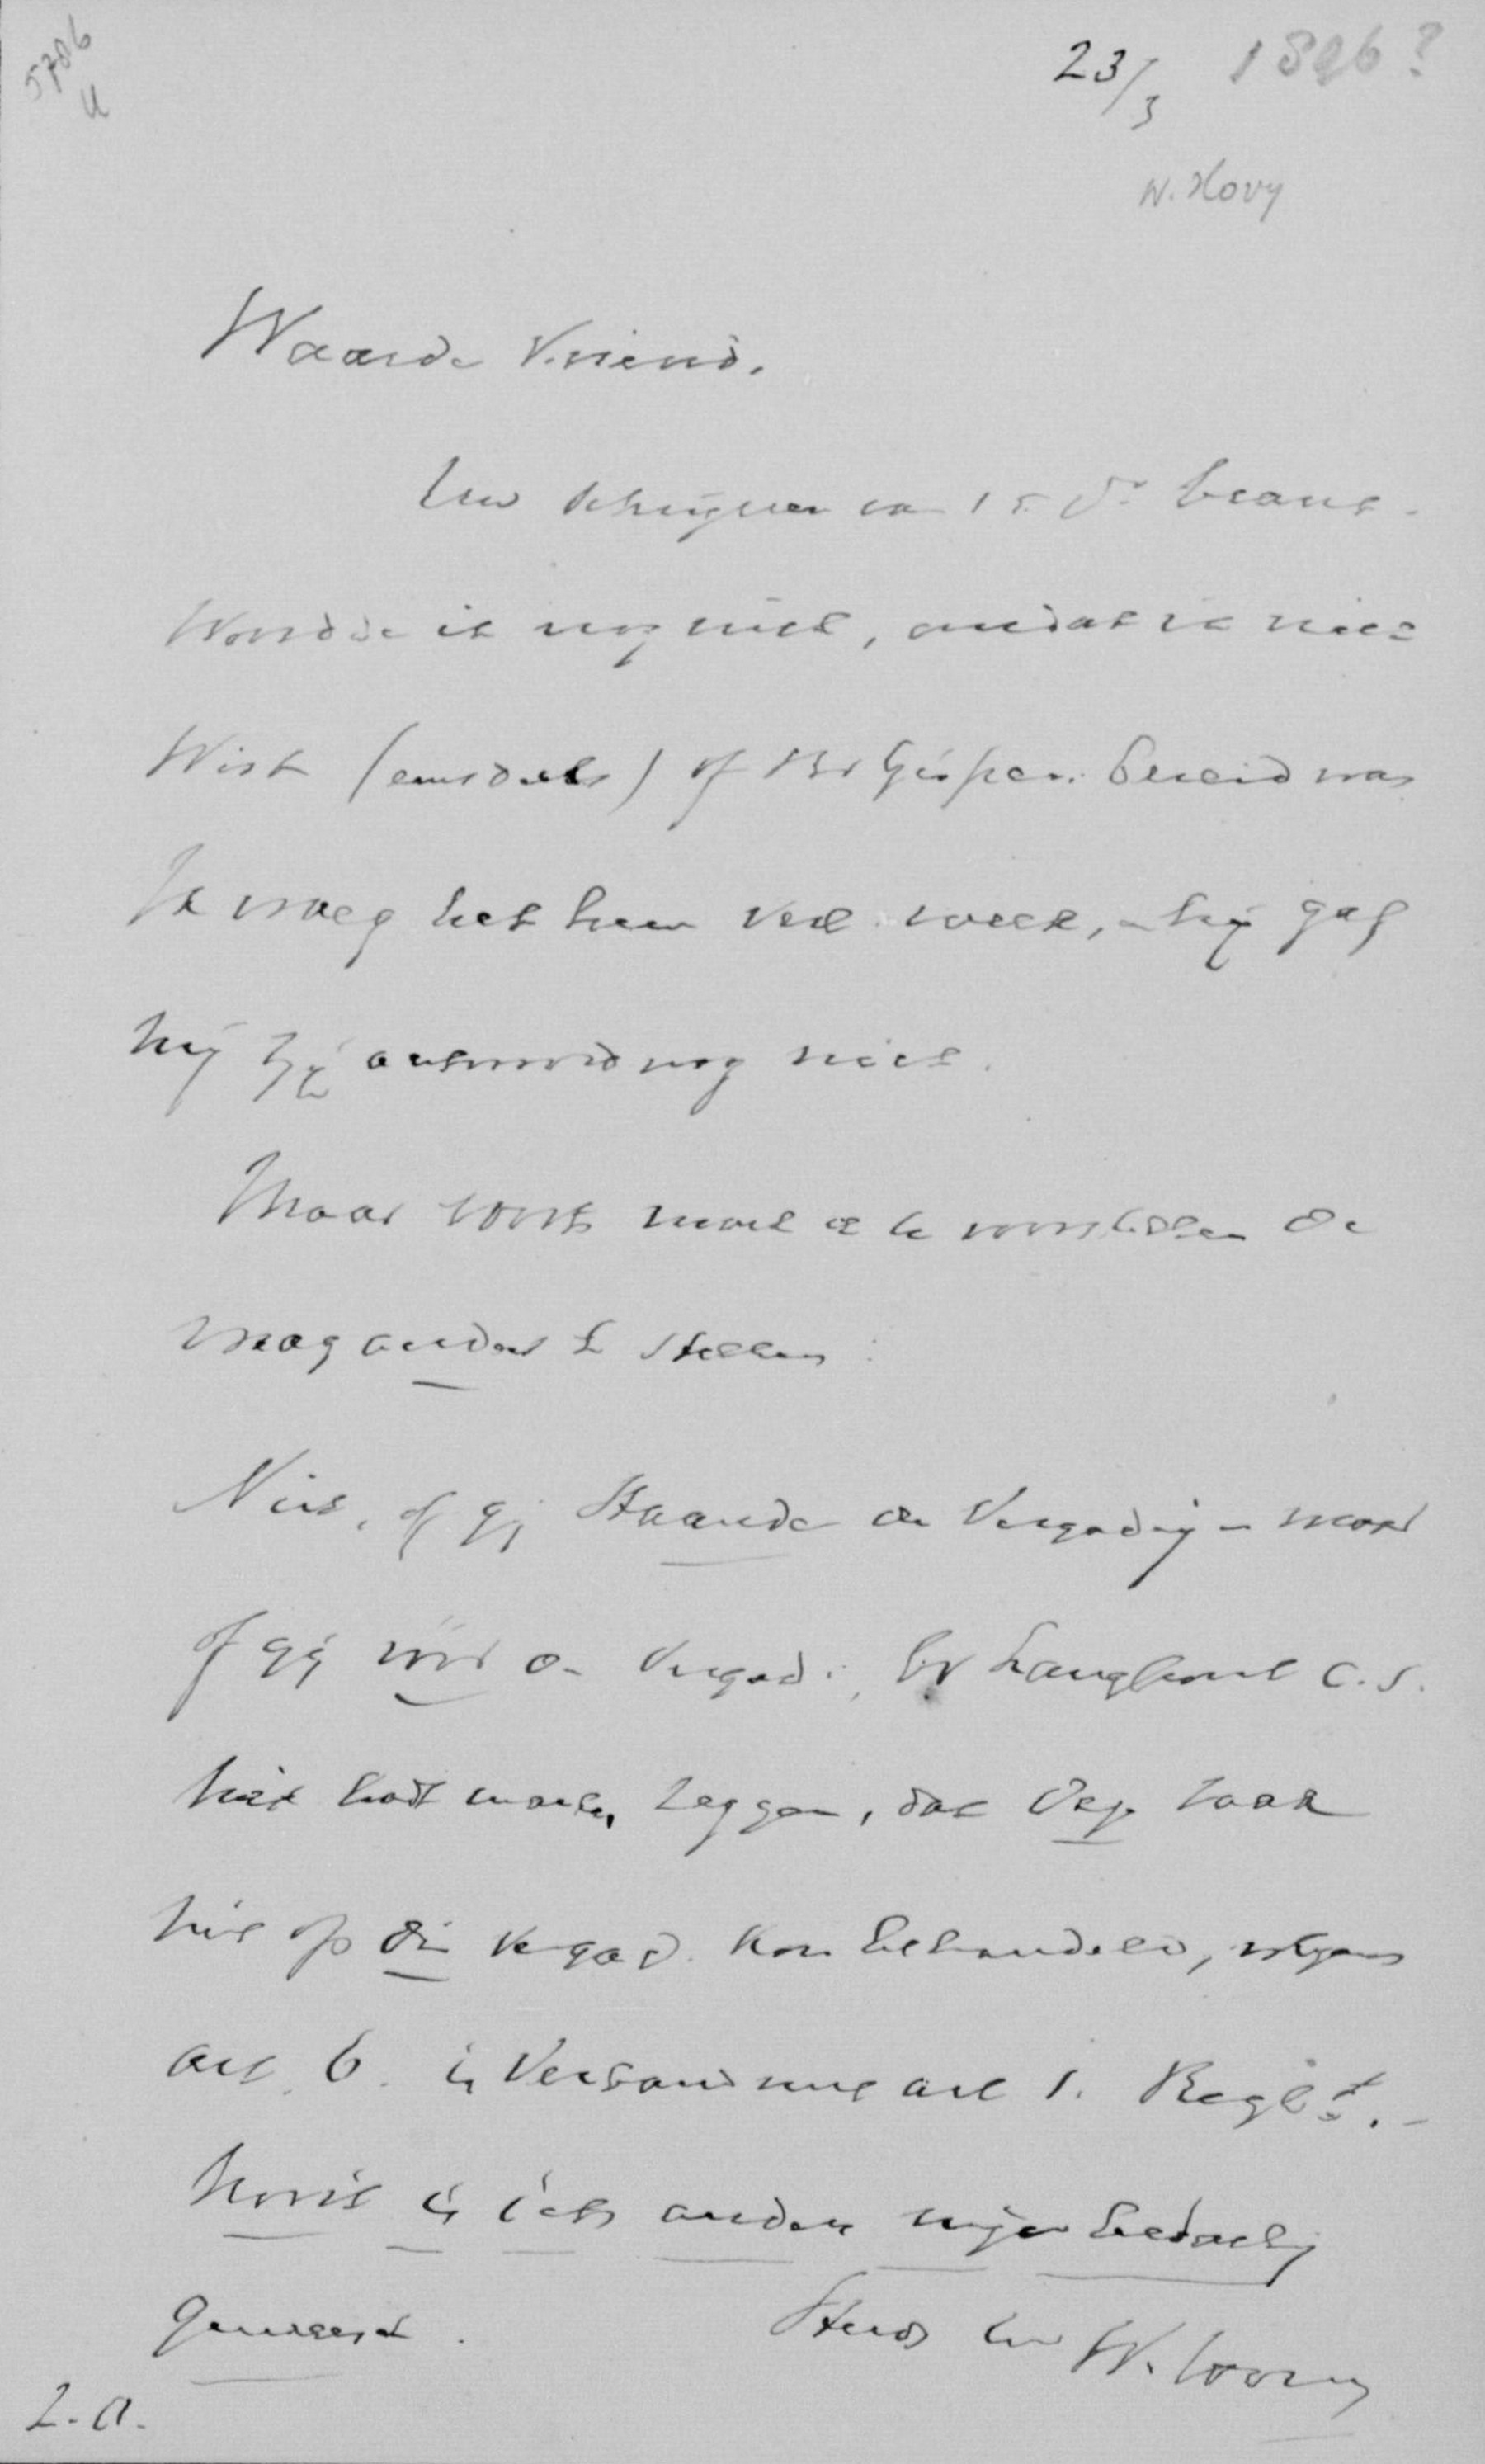 5786
23/3 1896?
W. Hovy
Waarde Vriend.
Uw schrijven van 15 dr beant-
woordde ik nog niet, omdat ik niet
wist (eensdeels) of Br Gispen bereid was
Ik vroeg het hem verl. week, hij gaf
mij zij antwoord nog niet.
Maar voorts moet ik u voorstellen de
vraag anders te stellen:
Niet, of gij staande de Vergadrij - maar
of gij vóór de Vergad: br Langhout c.s.
niet hadt moeten zeggen, dat deze zaak
niet op die vergad. kon behandeld, volgens
art. 6. in verband met art 1. Regl t. -
Nooit is iets anders mijn bedoelg
geweest.
Steeds Uw W. Hovy
Z.a.